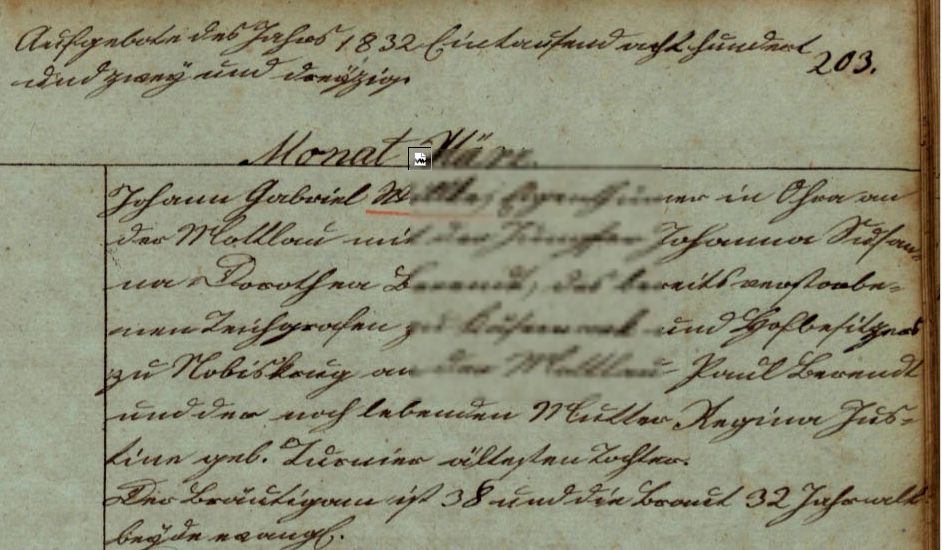 Aufgebote des Jahrs 1832 Eintausend acht hundert
und zwey und dreyzig.
203.
Monat März.
Johann Gabriel Eigenthümer in Ohra an
der Mottlau mit der Jungfer Johanna Susan=
na Dorothea Berendt, des bereits verstorbe=
nen Teichgrafen zu und Hofbesitzers
zu Nobiskrug an der Mottlau Paul Berendt
und der noch lebenden Mutter Regina Jus=
tine geb. Turnier ältesten Tochter.
Der Bräutigam ist 38 und die Braut 32 Jahr alt
beyde evangl.